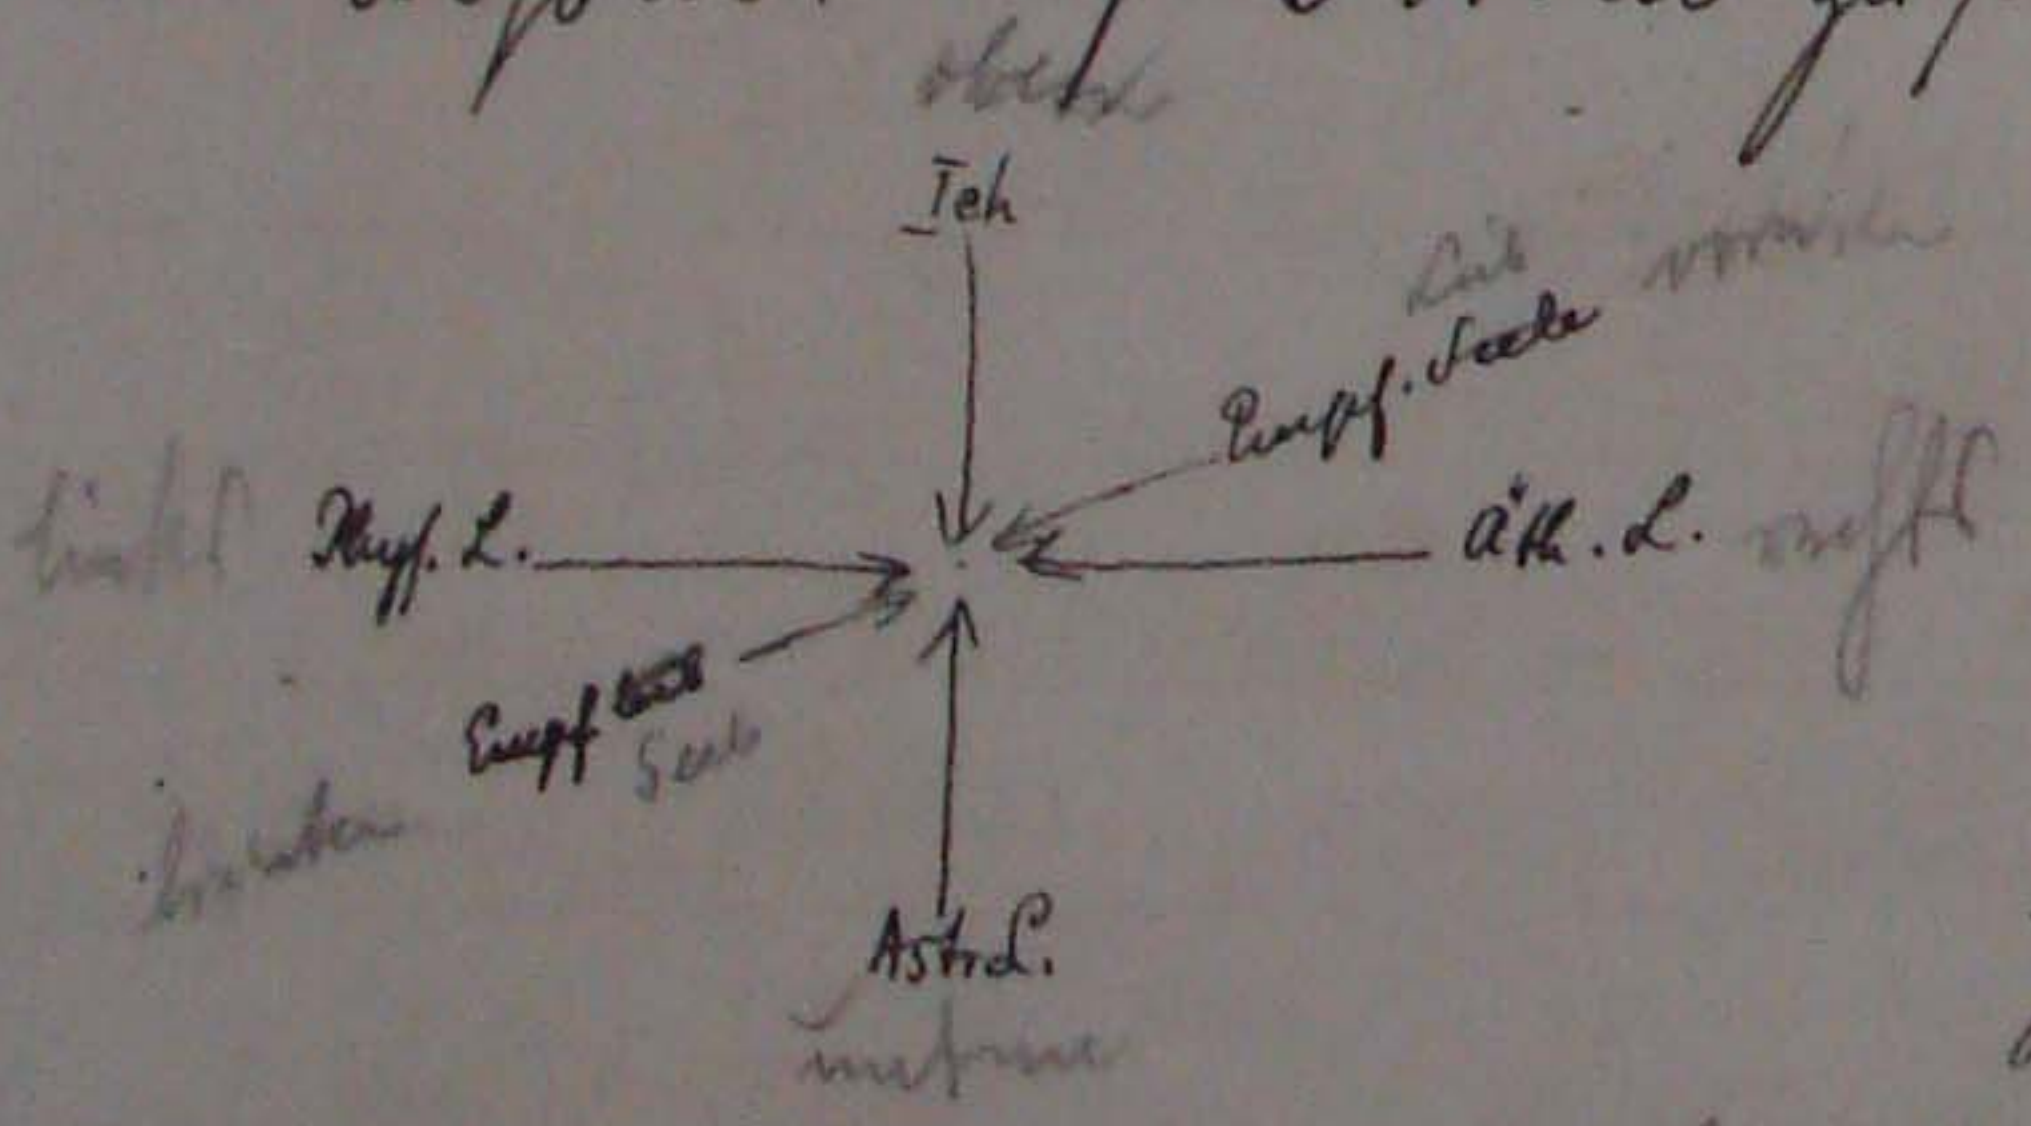 oben
Ich
Leib vorn
Empf. Seele
links Phys. L. Äth. L. rechts
Empf Leib
Seele
hinten
Astr. L.
unten